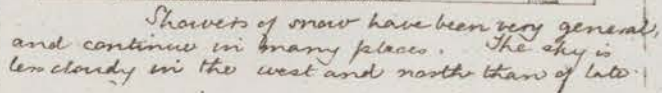 Showers of snow have been very general,
and continue in many places. The sky is
less cloudy in the west and north than of late.